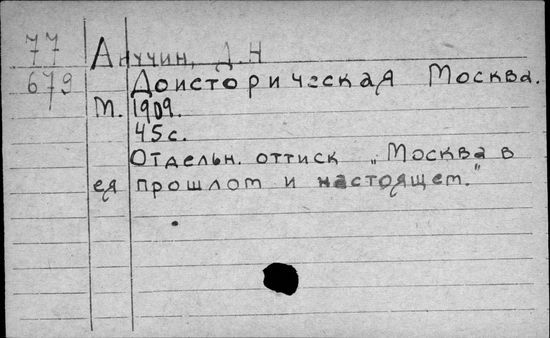 77 Анучин, Д.Н
679 Доисторическая Москва.
М. 1909.
45с.
Отдельн. оттиск „Москва в
ея прошлом и настоящем."